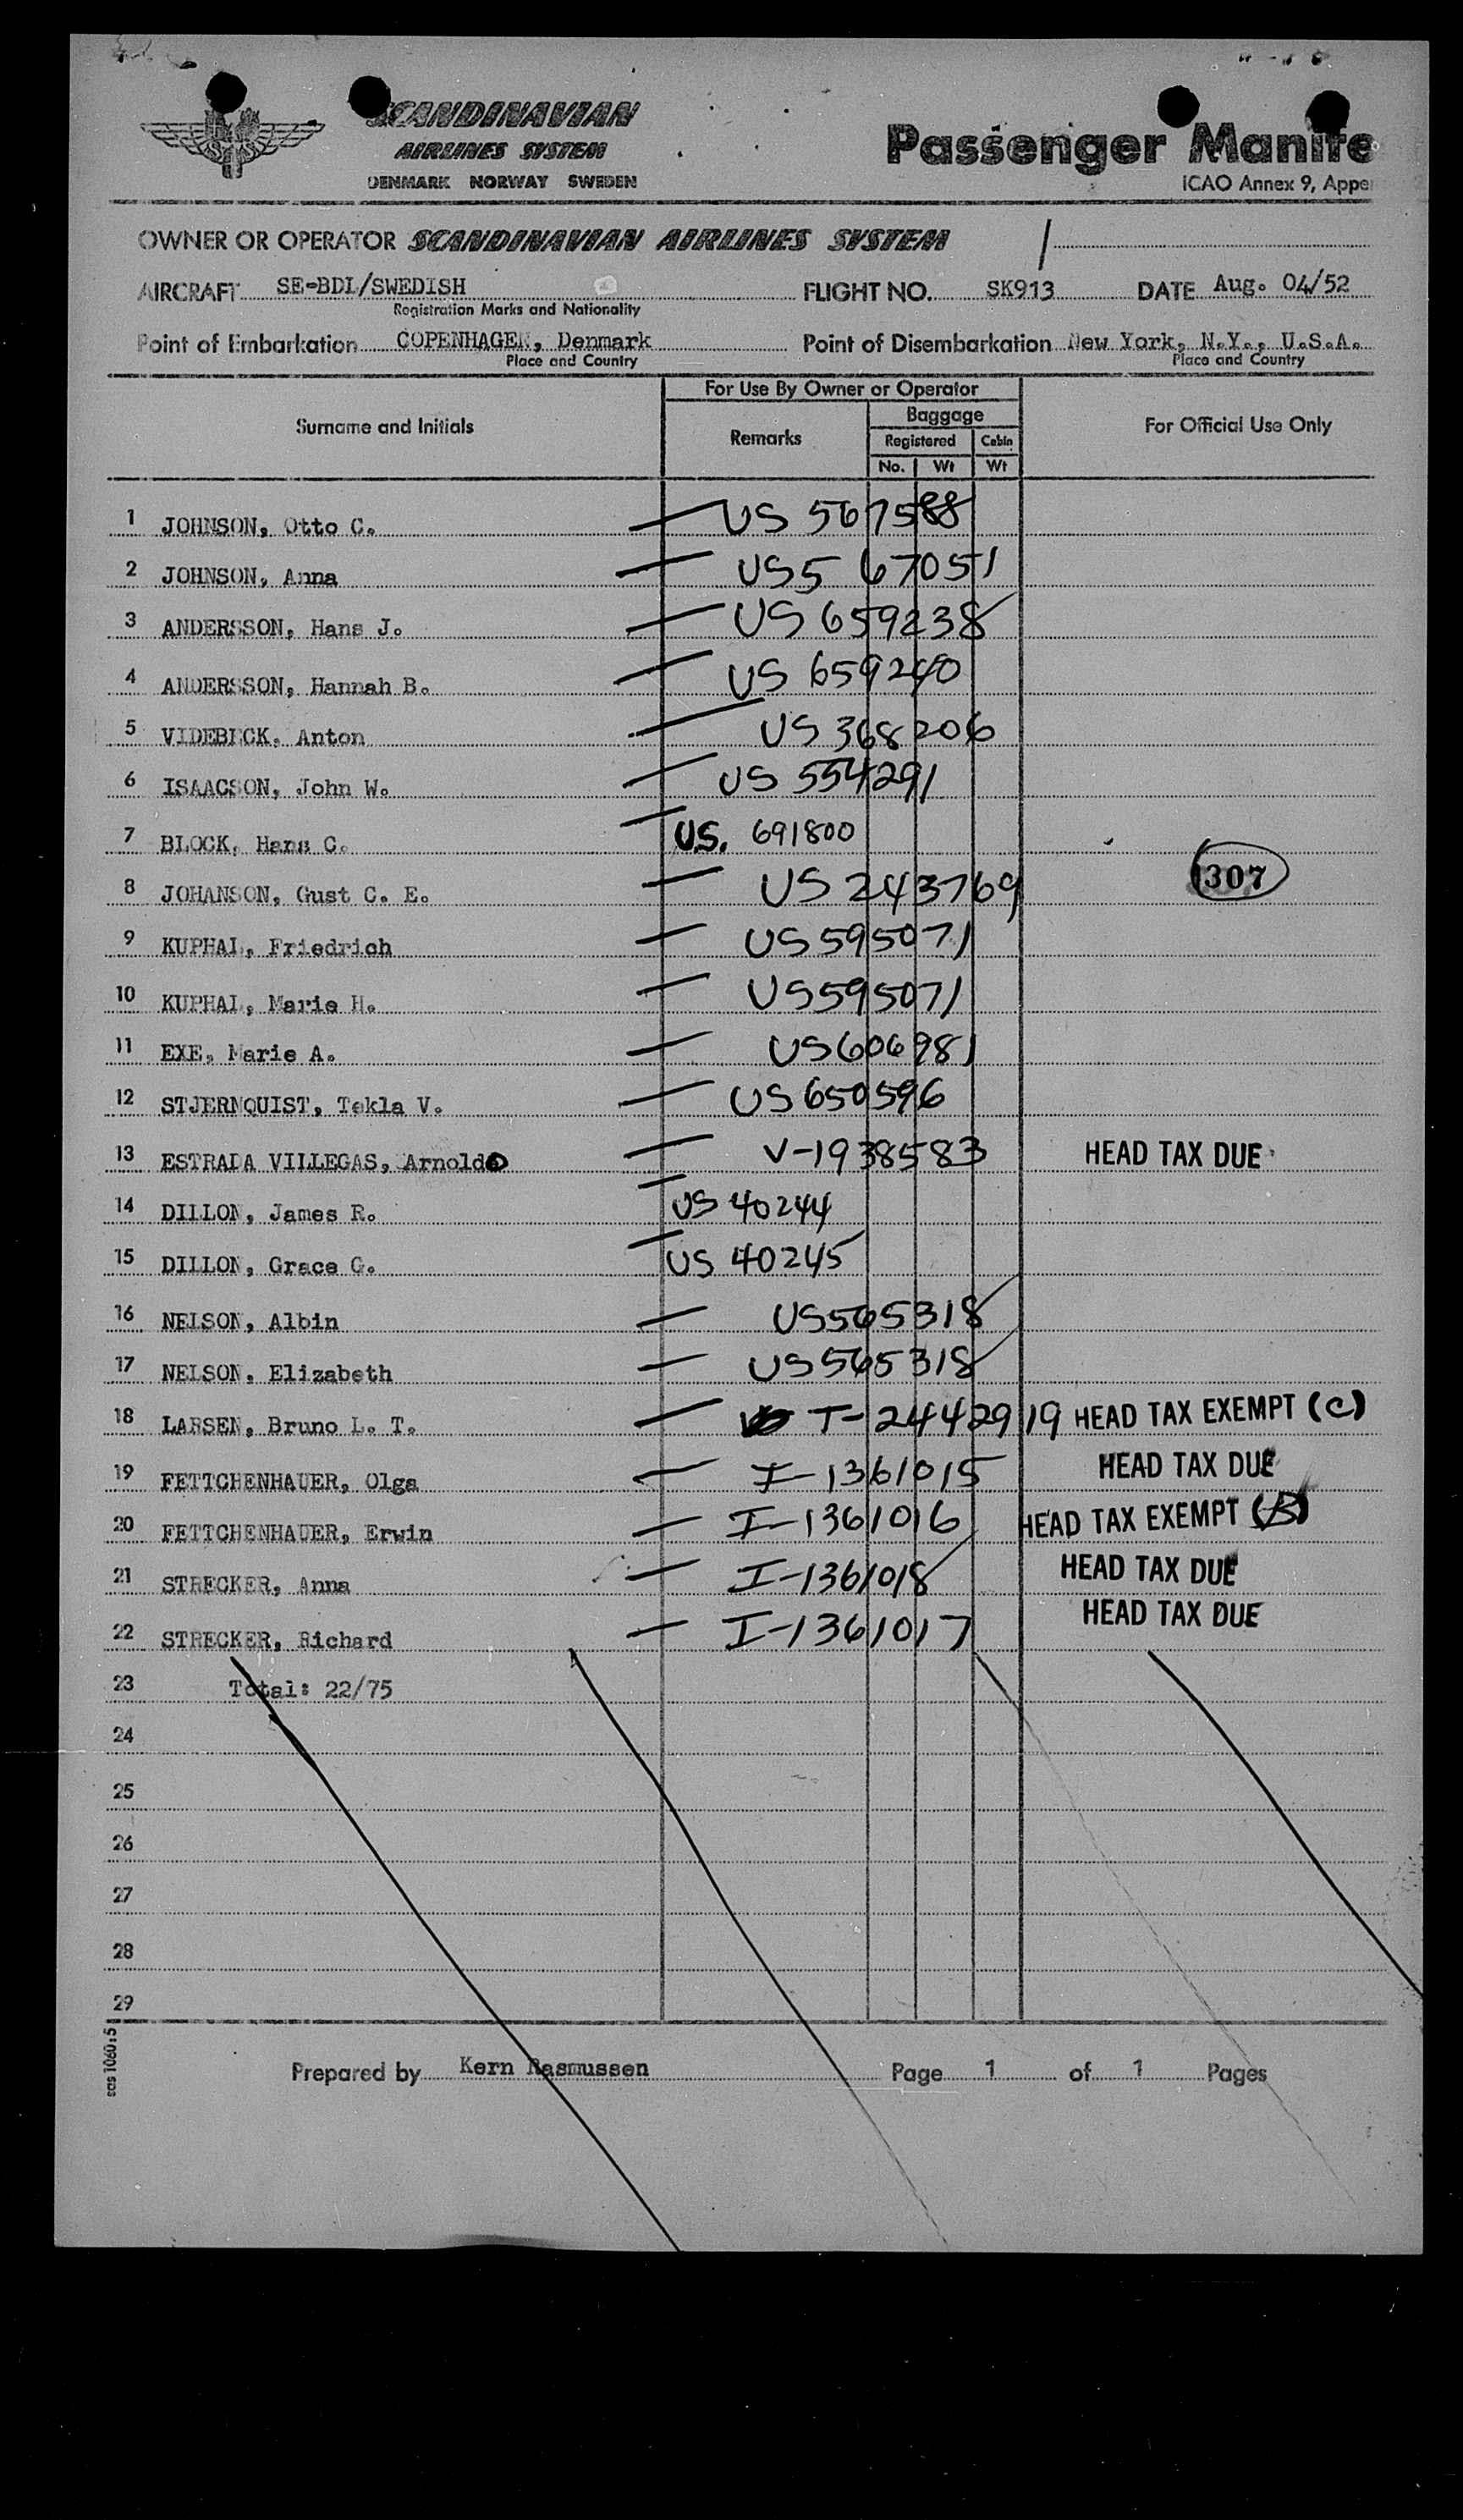 SCANDINAVIAN
AIRLINES SYSTEM
DENMARK NORWAY SWEDEN
Passenger Manife
ICAO Annex 9, Appe
OWNER OR OPERATOR SCANDINAVIAN AIRLINES SYSTEM
AIRCRAFT SE-BDL/SWEDISH FLIGHT NO. SK913 DATE Aug. 04/52
Registration Marks and Nationality
Point of Embarkation COPENHAGEN, Denmark Point of Disembarkation New York, N.Y., U.S.A.
Place and Country Place and Country
For Use By Owner or Operator
Surname and Initials Remarks Baggage For Official Use Only
Registered Cabin
No. Wt Wt
1 JOHNSON, Otto C. US 567588
2 JOHNSON, Anna US 567051
3 ANDERSSON, Hans J. US 659238
4 ANDERSSON, Hannah B. US 659240
5 VIDEBECK, Anton US 368206
6 ISAACSON, John W. US 554291
7 BLOCK, Hans C. U.S. 691800
8 JOHANSON, Gust C. E. US 243769 307
9 KUPHAL, Friedrich US 595071
10 KUPHAL, Marie H. US 595071
11 EXE, Marie A. US 606981
12 STJERNQUIST, Tekla V. US 650596
13 ESTRADA VILLEGAS, Arnoldo V-19385583 HEAD TAX DUE
14 DILLON, James R. US 40244
15 DILLON, Grace G. US 40245
16 NELSON, Albin US 565318
17 NELSON, Elizabeth US 565318
18 LARSEN, Bruno L. T. T-2442919 HEAD TAX EXEMPT (C)
19 FETTCHENHAUER, Olga I-1361015 HEAD TAX DUE
20 FETTCHENHAUER, Erwin I-1361016 HEAD TAX EXEMPT (B)
21 STRECKER, Anna I-1361018 HEAD TAX DUE
22 STRECKER, Richard I-1361017 HEAD TAX DUE
23 Total: 22/75
24
25
26
27
28
29
sas 1060:5
Prepared by Kern Rasmussen Page 1 of 1 Pages